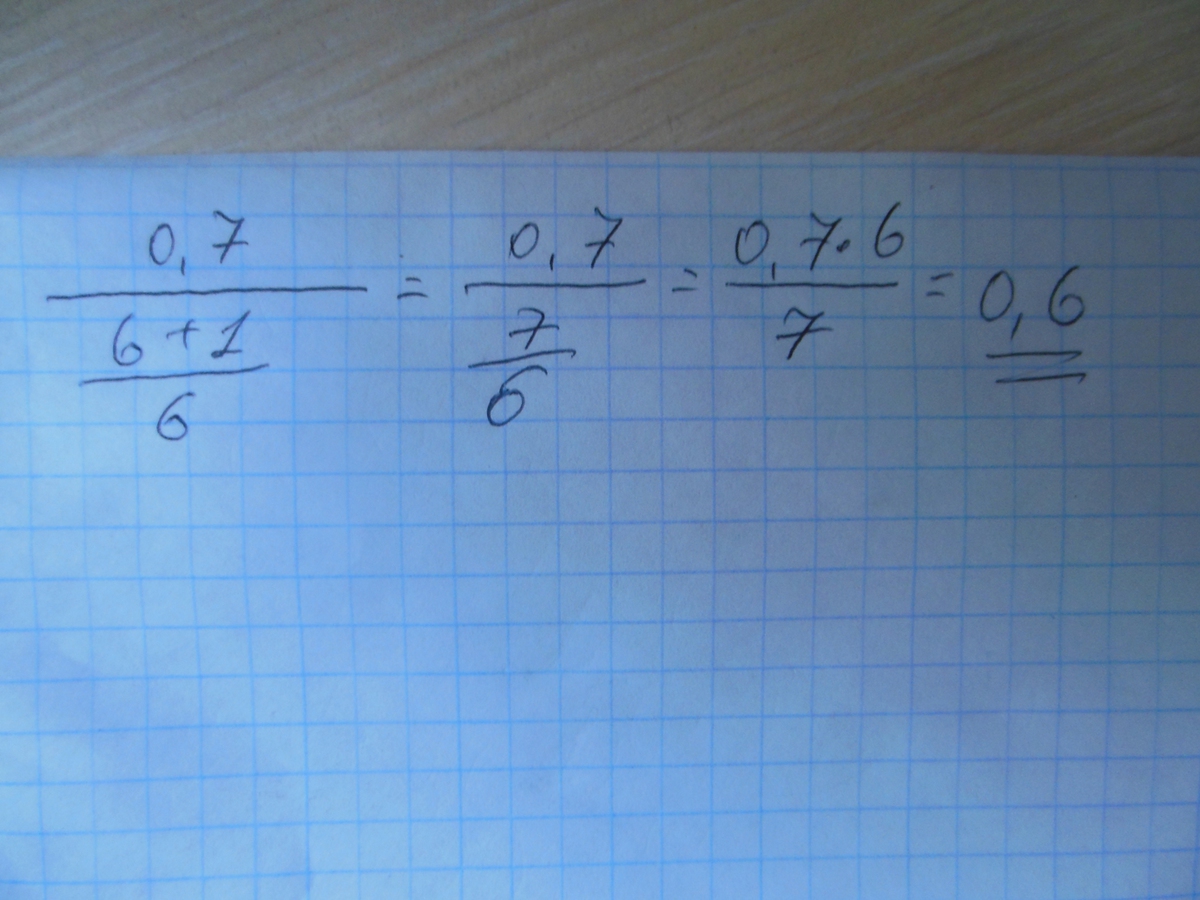 0,7/((6+1)/6) = 0,7/(7/6) = 0,7·6/7 = 0,6